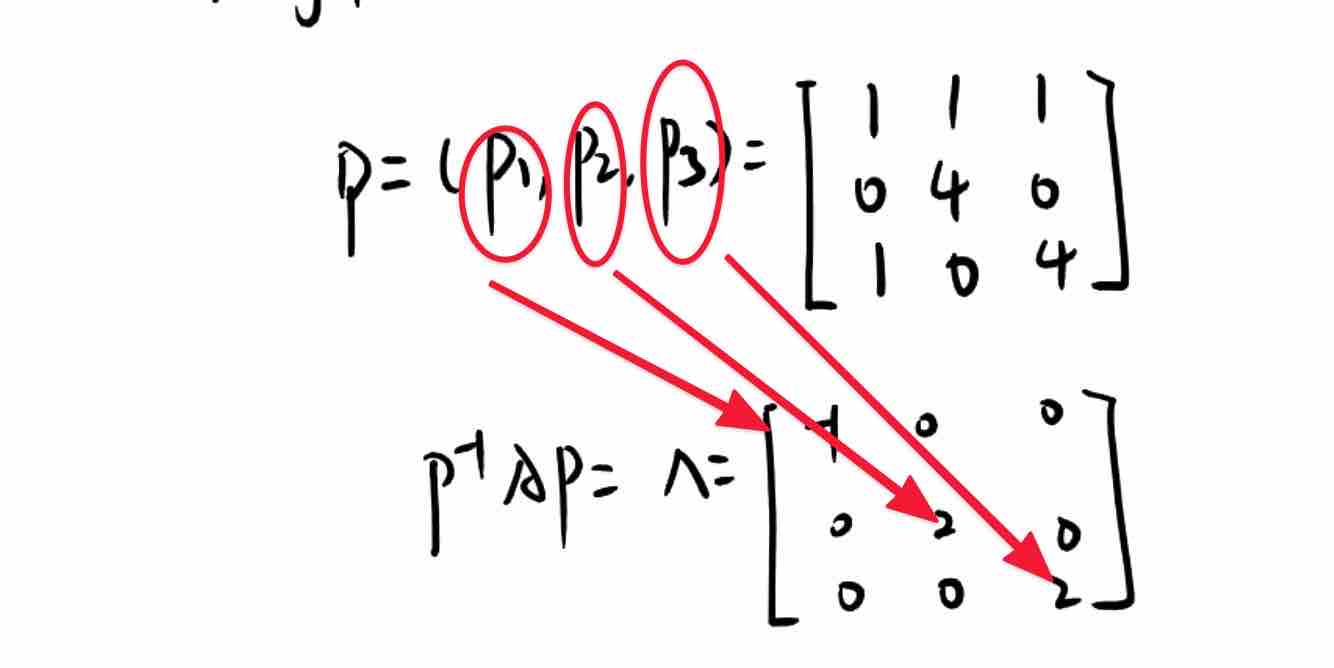 P = (P1, P2, P3) = [ 1 1 1
0 4 0
1 0 4 ]
P⁻¹AP = Λ = [ -1 0 0
0 2 0
0 0 2 ]